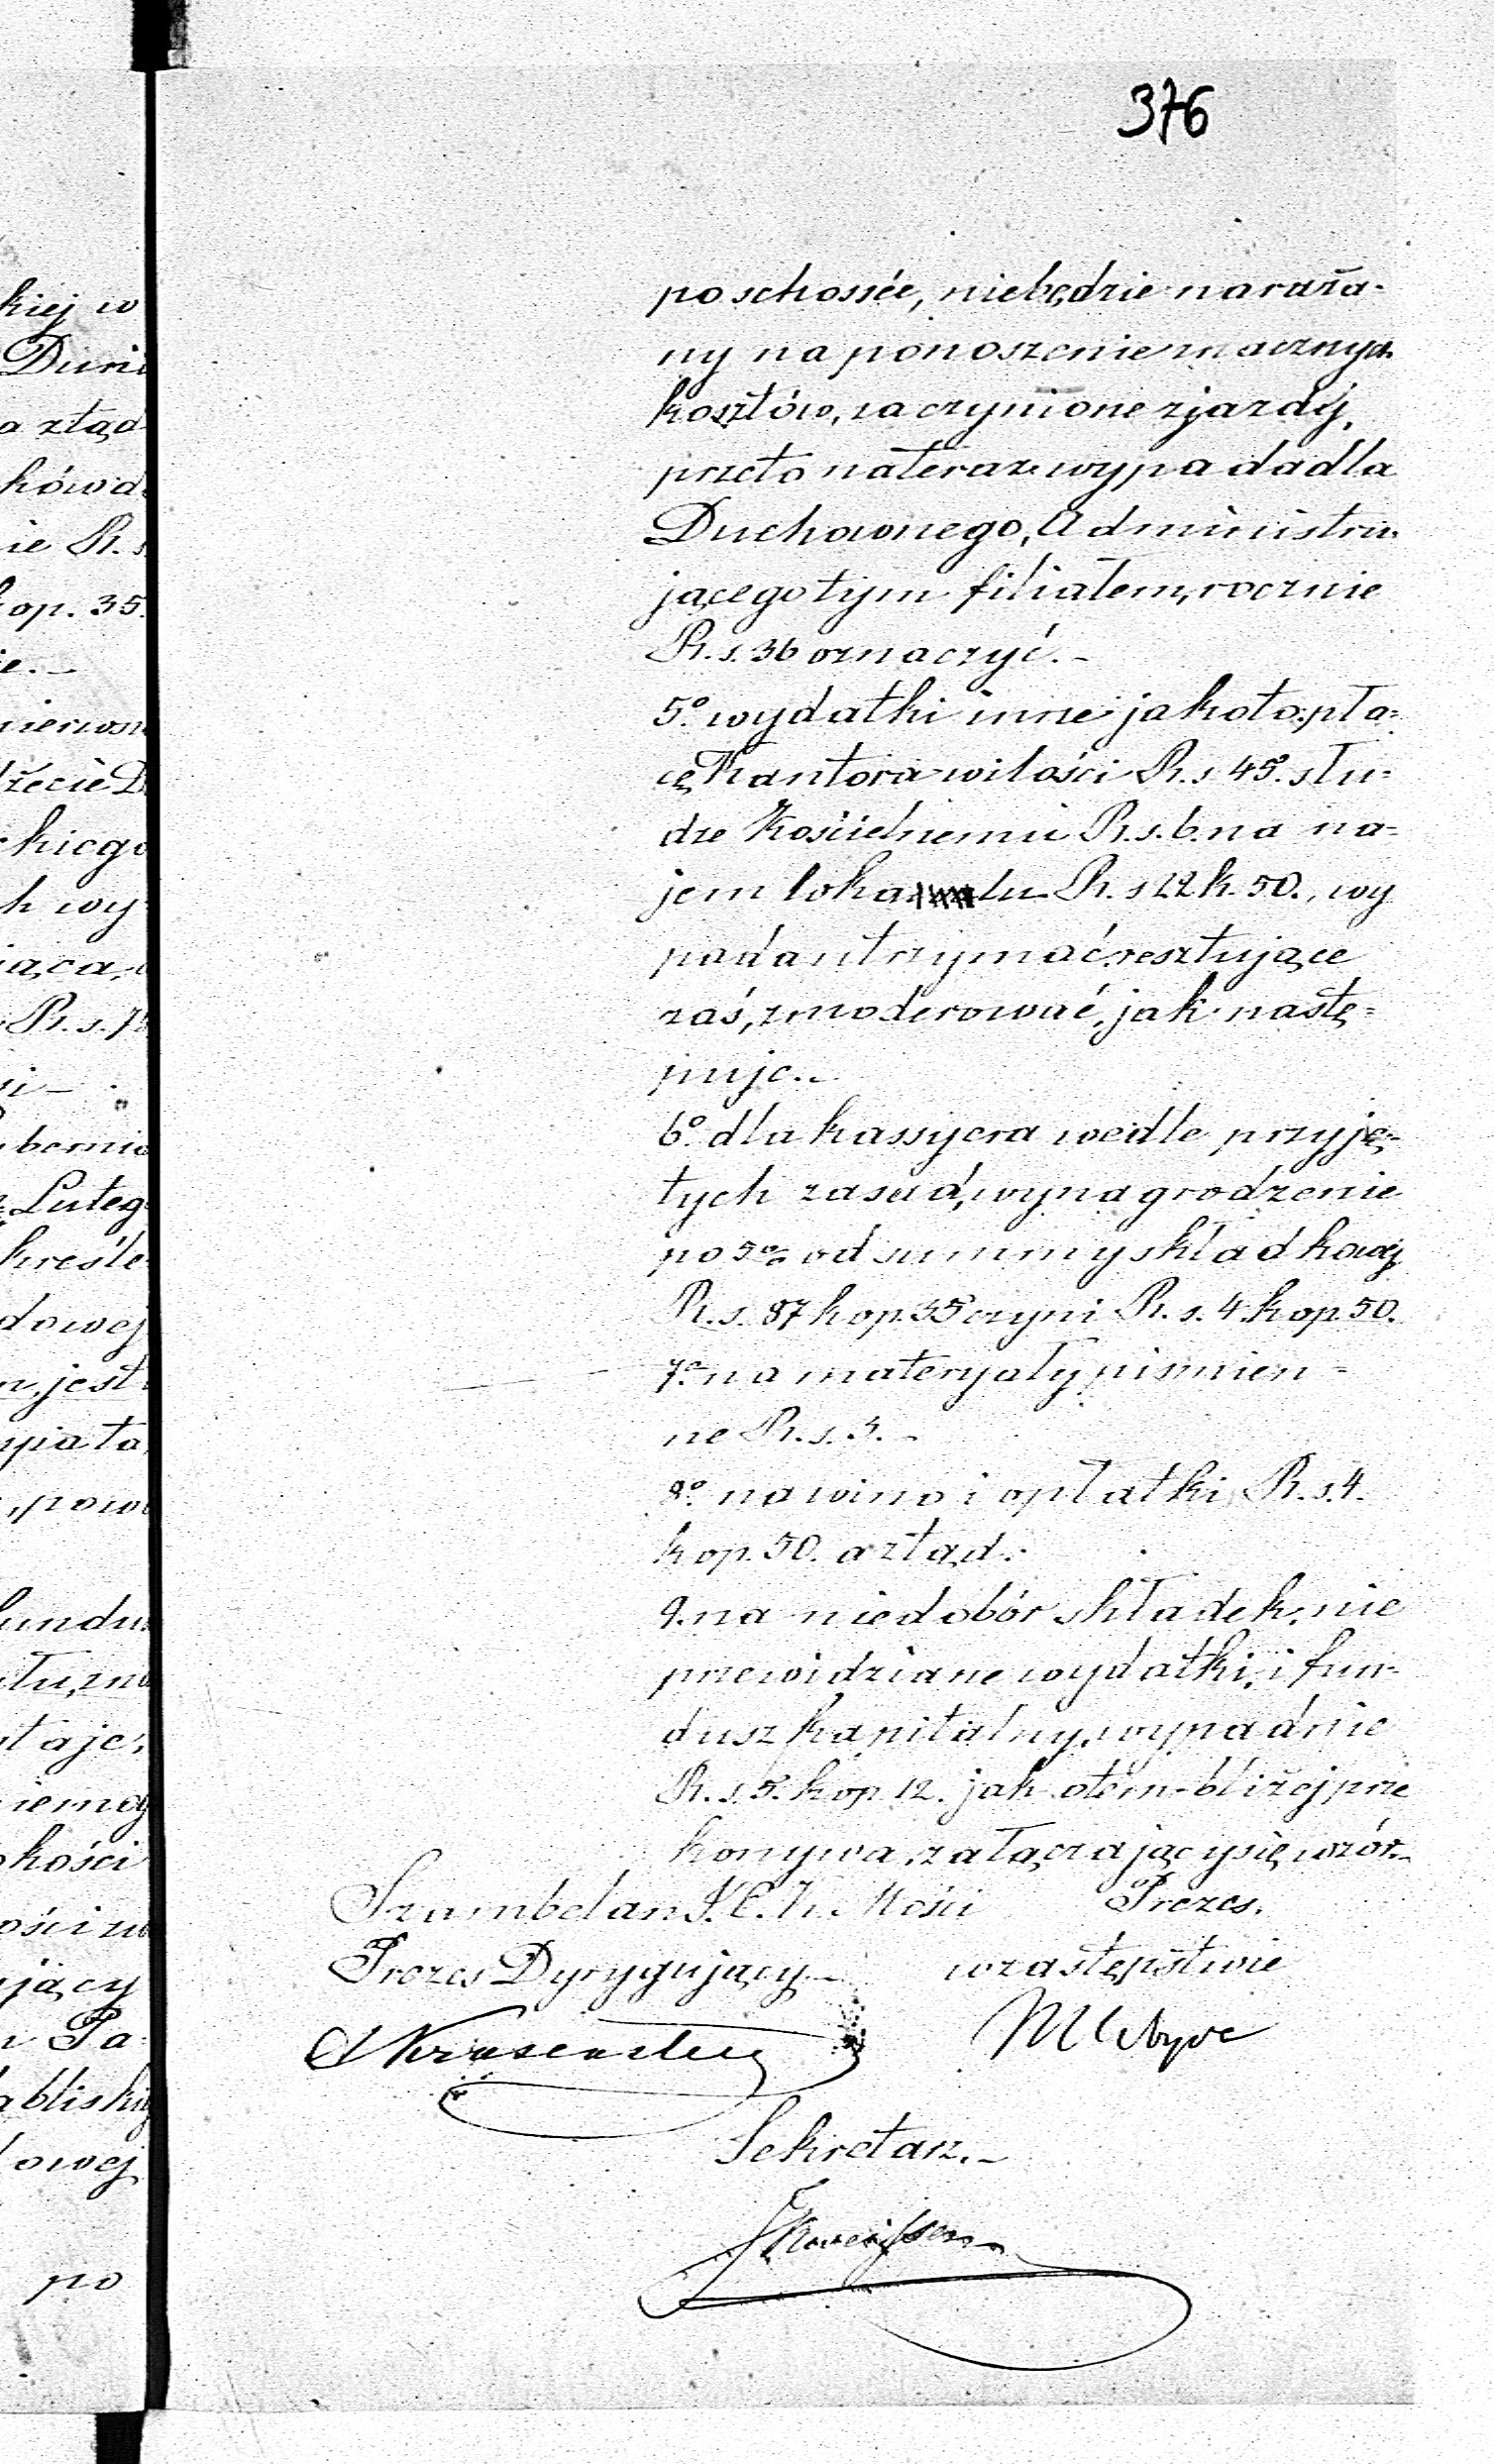 376
po schossée, niebędzie naraża-
ny na ponoszenie znacznych
kosztów, za czynione zjazdy,
przeto nateraz wypada dla
Duchownego, Administru-
jącego tym filiałem, rocznie
R. s. 36 oznaczyć. -
5º wydatki inne jakoto: pła=
cę Kantora wilości R. s. 45. słu=
dze Kościelnemu R. s. 6. na na=
jem lokalu R. s 22 k. 50., wy
pada utrzymać, resztujące
zaś, zmoderować, jak nastę=
puje. -
6º dla kassyera wedle przyję=
tych zasad, wynagrodzenie
po 5% od summy składkowej
R. s. 87 kop. 35 czyni R. s. 4. kop 50.
7º na materyały piśmien=
ne R. s. 3. -
8º na wino i opłatki R. s. 4.
kop. 50. a ztąd:
9. na niedobór składek, nie
przewidziane wydatki, i fun-
dusz kapitalny, wypadnie
R. s. 5. kop 12. jak otem bliżej prze
konywa, załączający się wzór. -
Szambelan J. C. K. Mości Prezes.
Prezes Dyrygujący - wzastępstwie
Sekretarz. -
kiej w
a ztąd
ie R. s
kop. 35.
ie. -
kiego
h wy
iąca,
R. s. 7
Luteg
kreśle
dowej
jest
ypała
, powo
fundu
taje,
iemą
kości
ości
jący
Pa
abliski
owej
po